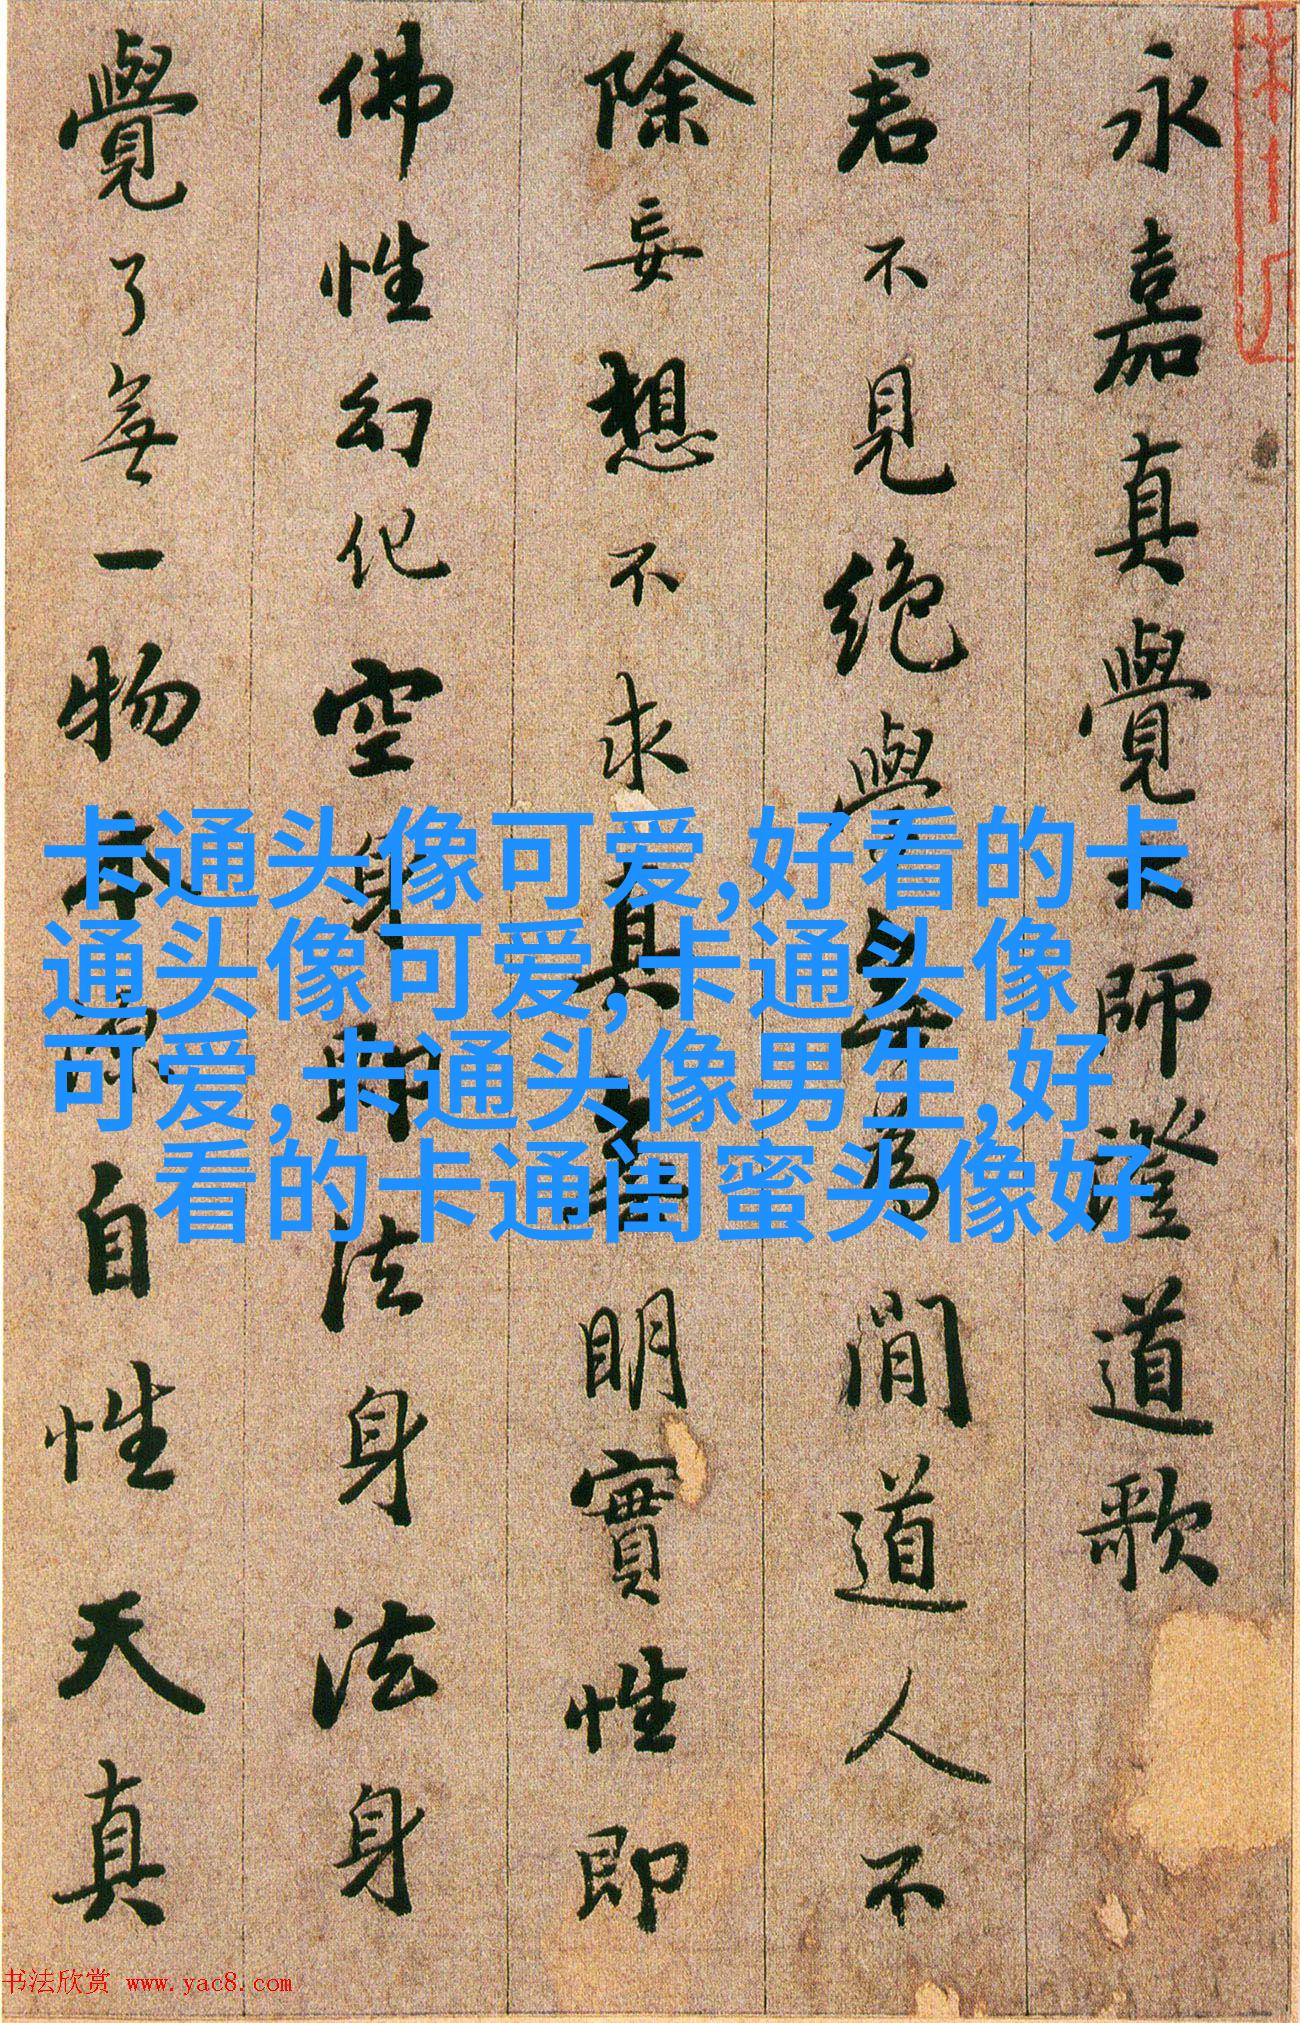 永嘉真覺大師證道歌
君不見絕學無為閒道人不
除妄想不求真無明實性即
佛性幻化空身即法身法身
覺了無一物本源自性天真
卡通头像可爱,好看的卡
通头像可爱,卡通头像
可爱,卡通头像男生,好
看的卡通闺蜜头像好
书法欣赏 www.yac8.com